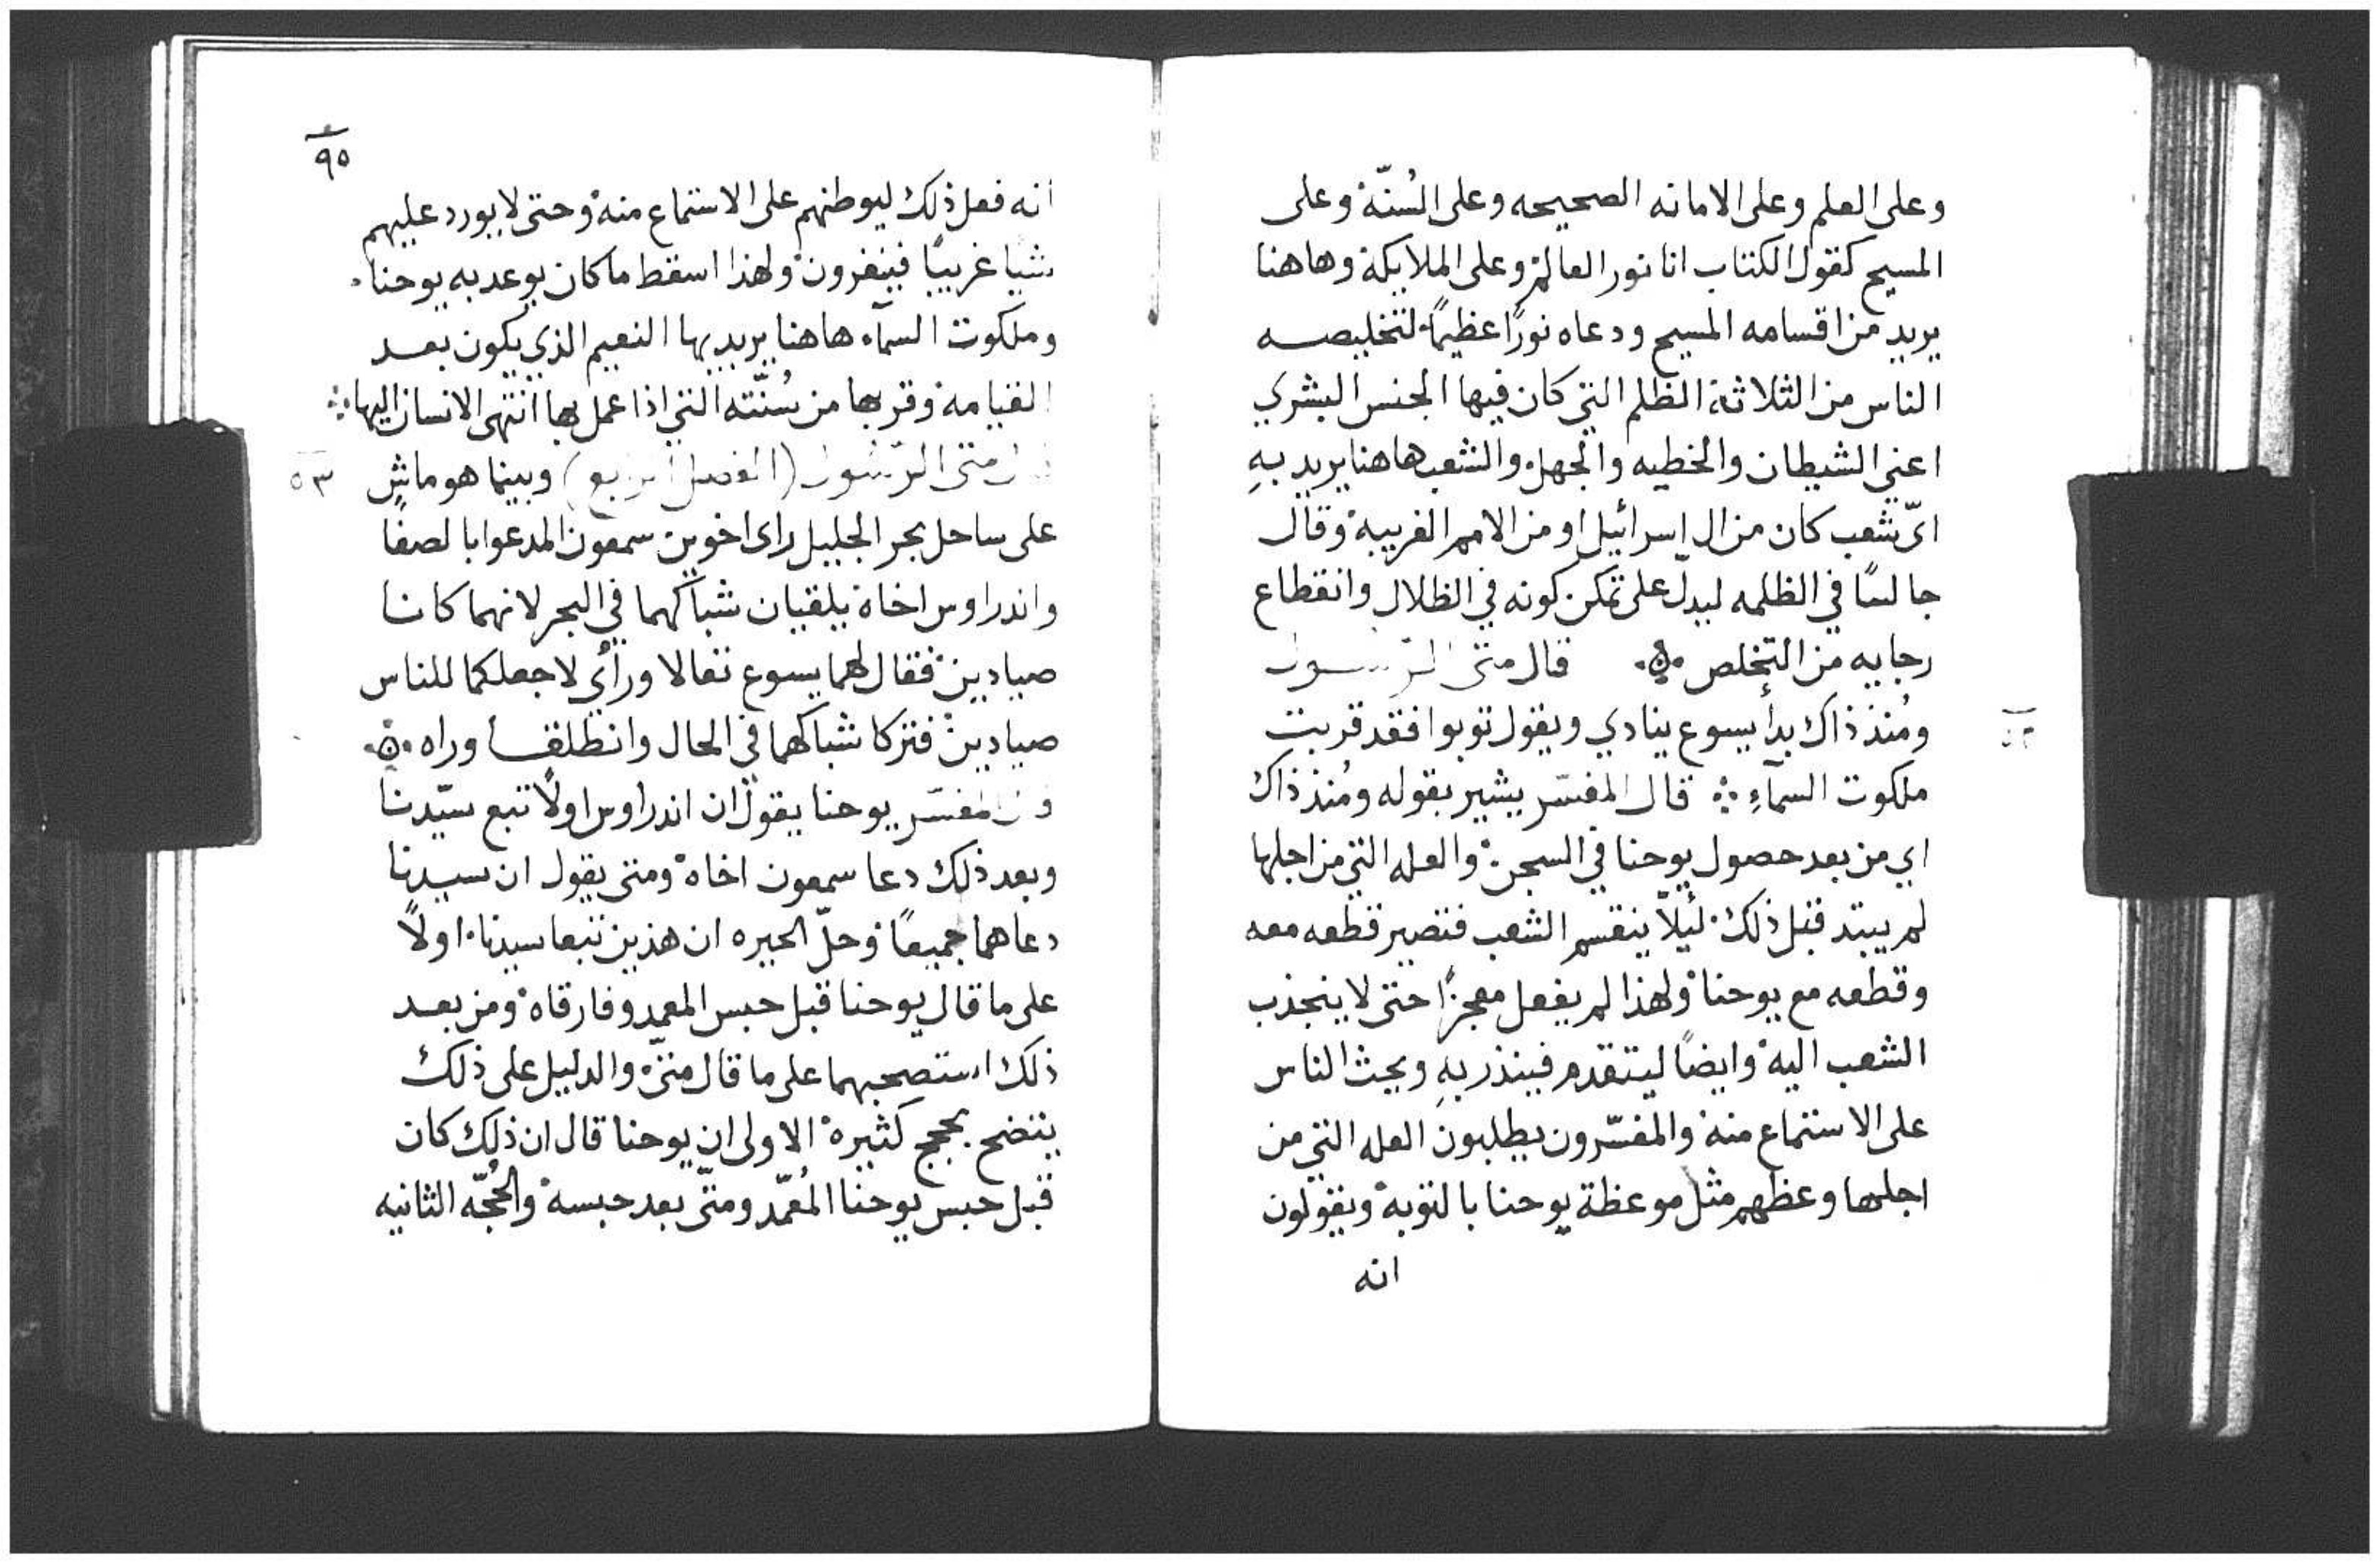 وعلى العلم وعلى الامانه الصحيحه وعلى السُنّة وعلى
المسيح كقول الكتاب انا نور العالم وعلى الملايكة وهاهنا
يريد من اقسامه المسيح ودعاه نورًا عظيمًا لتخليصه
الناس من الثلاثة الظلم التي كان فيها الجنس البشري
اعني الشيطان والخطيه والجهل والشعب هاهنا يريد بهِ
ايّ شعب كان من ال اسرائيل او من الامم الغريبة وقال
جالسًا في الظلمه ليدلّ على تمكن كونه في الظلال وانقطاع
رجايه من التخلص قال متى الرسول
ومُنذ ذاك بدأ يسوع ينادي ويقول توبوا فقد قربت
ملكوت السمآءِ قال المفسّر يشير بقوله ومُنذ ذاك
اي من بعد حصول يوحنا في السجن والعله التي من اجلها
لم يبتد قبل ذلك ليًلّا ينقسم الشعب فتصير قطعه معه
وقطعه مع يوحنا ولهذا لم يفعل معجزًا حتى لا ينجذب
الشعب اليه وايضًا ليتقدم فينذر بهِ ويحث الناس
على الاستماع منه والمفسّرون يطلبون العله التي من
اجلها وعظهم مثل موعظة يوحنا بالتوبه ويقولون
انه
٩٥
انه فعل ذلك ليوطنهم على الاستماع منه وحتى لا يورد عليهم
شيا غريبًا فينفرون ولهذا اسقط ما كان يوعد به يوحنا
وملكوت السمآء هاهنا يريد بها النعيم الذي يكون بعد
القيامة وقربها من سُنّته التي اذا عمل بها انتهى الانسان اليها
قال متى الرسول (الفصل الرابع) وبينما هو ماشٍ
٥٣
على ساحل بحر الجليل راى اخوين سمعون المدعوا بالصفا
واندراوس اخاه يلقيان شباكهما في البحر لانهما كانا
صيادين فقال لهما يسوع تعالا ورأي لاجعلكما للناس
صيادين فتركا شباكهما في الحال وانطلقا وراه
قال المفسّر يوحنا يقول ان اندراوس اولًا تبع سيّدنا
وبعد ذلك دعا سمعون اخاه ومتى يقول ان سيدنا
دعاهما جميعًا وحلّ الحيره ان هذين تبعا سيدنا اولًا
على ما قال يوحنا قبل حبس المعمد وفارقاه ومن بعد
ذلك استصحبهما على ما قال متى والدليل على ذلك
يتضح بحجج كثيره الاولى ان يوحنا قال ان ذلك كان
قبل حبس يوحنا المُعمّد ومتّى بعد حبسه والحُجّه الثانيه